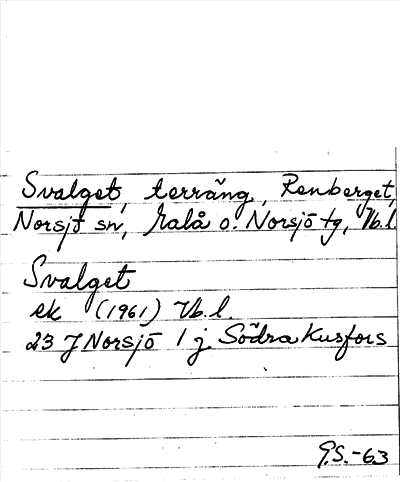 Svalget, terräng, Renberget,
Norsjö sn, Malå o. Norsjö tg, Vb.l.
Svalget
ek (1961) Vb.l.
23 J Norsjö 1 j Södra Kusfors
G.S.-63